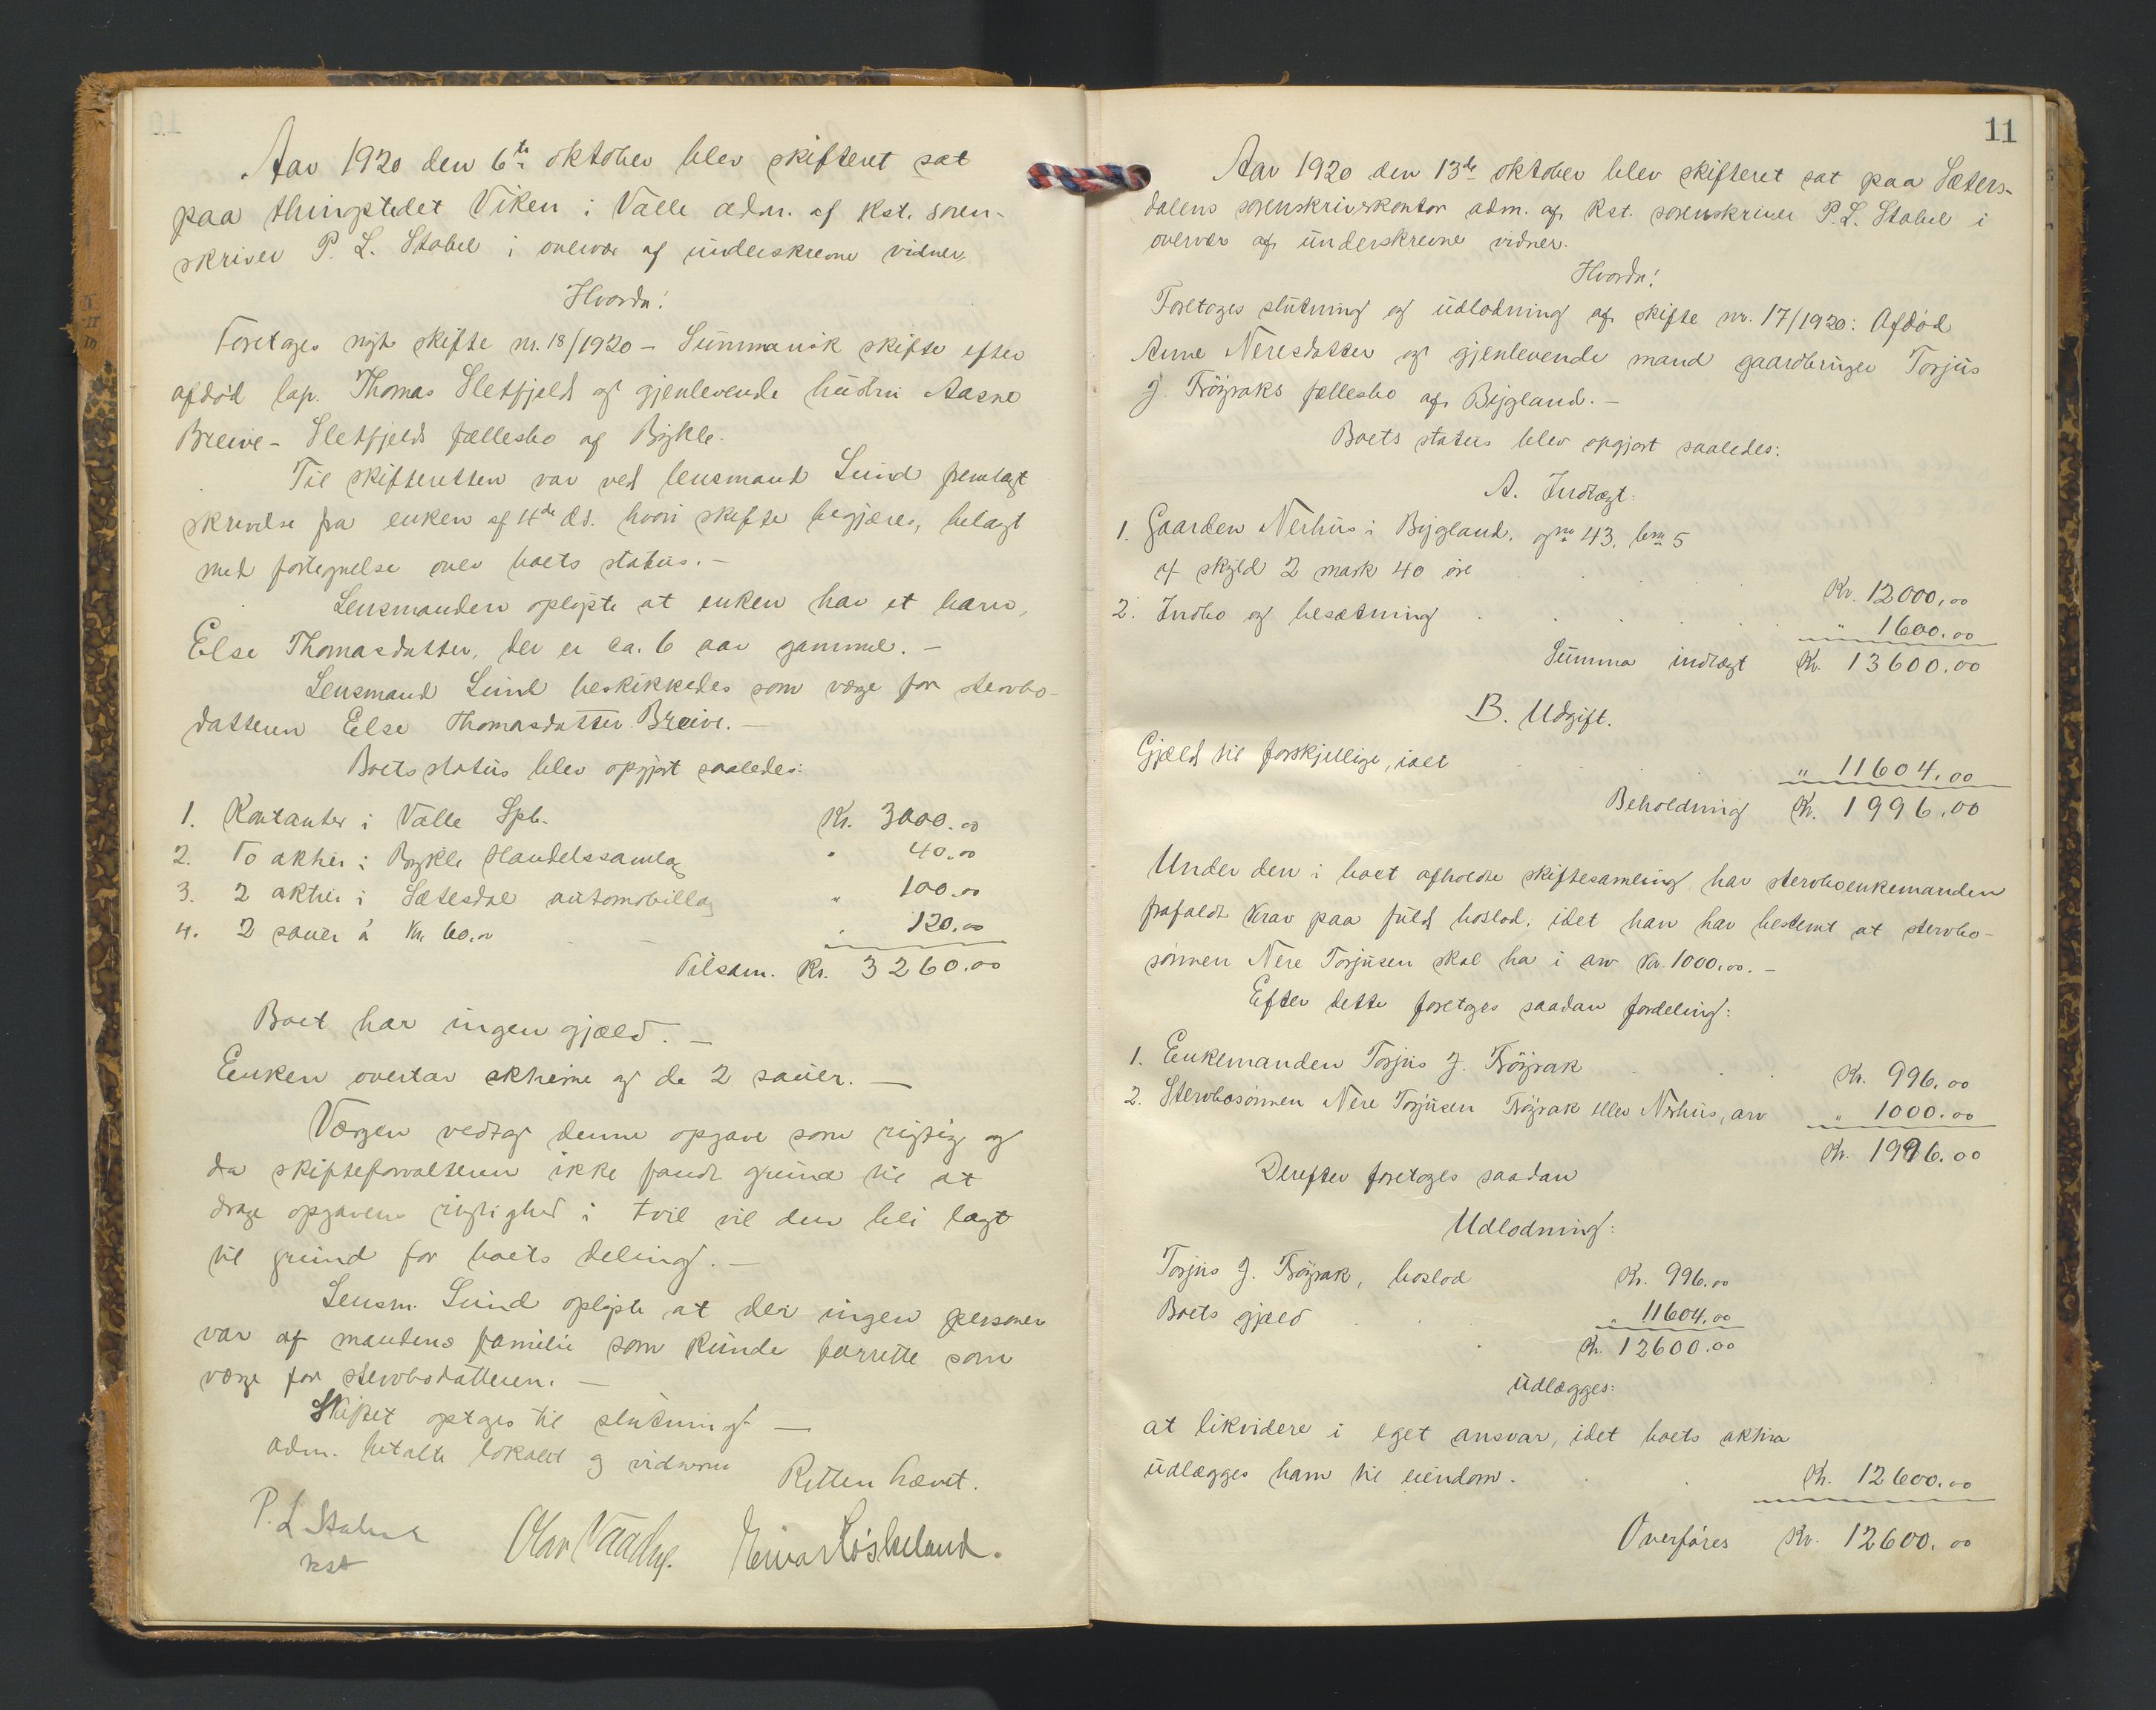 Aar 1920 den 6te oktober blev skifteret sat
paa thingstedet Viken i Valle adm. af Kst. soren-
skriver P. L. Stabel i overvær af underskrevne vidner.
Hvorda!
Foretages nyt skifte nr. 18/1920 - Summarisk skifte efter
afdød lap. Thomas Sletfjeld og gjenlevende hustru Aasne
Breive - Sletfjelds fællesbo af Bykle.
Til skifteretten var ved lensmand Lund fremlagt
skrivelse fra enken af 4de ds. hvori skifte begjæres, belagt
med fortegnelse over boets status. -
Lensmanden oplyste at enken har et barn,
Else Thomasdatter, der er ca. 6 aar gammel. -
Lensmand Lund beskikkedes som værge for stervbo-
datteren Else Thomasdatter Breive. -
Boets status blev opgjort saaledes:
1. Kontanter i Valle Spb. Kr. 3000.00
2. To aktier i Bykle Handelssamlag " 40.00
3. 2 aktier i Sætesdal automobillag " 100.00
4. 2 sauer à Kr. 60.00 " 120.00
Tilsam. Kr. 3260.00
Boet har ingen gjæld. -
Enken overtar aktierne og de 2 sauer. -
Værgen vedtog denne opgave som rigtig og
da skifteforvalteren ikke fandt grund til at
drage opgavens rigtighed i tvil vil den bli lagt
til grund for boets deling. -
Lensm. Lund oplyste at der ingen personer
var af mandens familie som kunde forrette som
værge for stervbodatteren. -
Skiftet optages til slutning -
Adm. betalte lokalet og vidnerne
Retten hævet.
P. L. Stabel
kst
11
Aar 1920 den 13de oktober blev skifteret sat paa Sæters-
dalens sorenskriverkontor adm. af Kst. sorenskriver P. L. Stabel i
overvær af underskrevne vidner.
Hvorda!
Foretages slutning og udlodning af skifte nr. 17/1920: Afdød
Anne Neresdatter og gjenlevende mand gaardbruger Torjus
J. Frøyraks fællesbo af Bygland. -
Boets status blev opgjort saaledes:
A. Indtægt:
1. Gaarden Nerhus i Bygland, gno 43, bno 5
af skyld 2 mark 40 øre Kr. 12000.00
2. Indbo og besætning " 1600.00
Summa indtægt Kr. 13600.00
B. Udgift.
Gjæld til forskjellige, ialt " 11604.00
Beholdning Kr. 1996.00
Under den i boet afholdte skiftesamling har stervboenkemanden
frafaldt krav paa fuld boslod, idet han har bestemt at stervbo-
sønnen Nere Torjusen skal ha i arv Kr. 1000.00. -
Efter dette foretages saadan fordeling:
1. Enkemanden Torjus J. Frøyrak Kr. 996.00
2. Stervbosønnen Nere Torjusen Frøyrak eller Nerhus, arv " 1000.00
Kr. 1996.00
Derefter foretages saadan
Udlodning:
Torjus J. Frøyrak, boslod Kr. 996.00
Boets gjæld " 11604.00
Kr. 12600.00
udlægges:
at likvidere i eget ansvar, idet boets aktiva
udlægges ham til eiendom. Kr. 12600.00
Overføres Kr. 12600.00